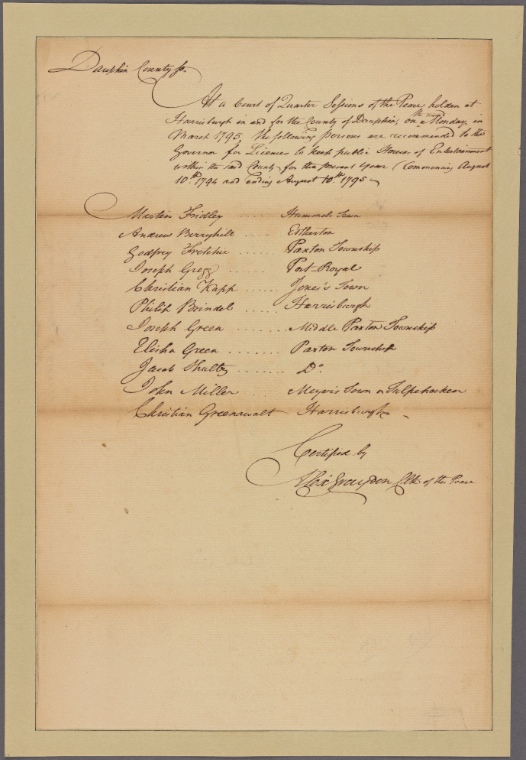 Dauphin County ss.
At a Court of Quarter Sessions of the Peace holden at
Harrisburgh in and for the County of Dauphin, on the Monday in
March 1795, The following persons are recommended to the
Governor for Licences to keep public Houses of Entertainment
within the said County for the present year (Commencing August
10th. 1794 and ending August 10th. 1795.
Martin Fridley .... Hummels Town
Andrew Berryhill .... Estherton
Godfrey .... Paxton Township
Joseph Gregg .... Port Royal
Christian Kapp .... Jones's Town
Philip Brindel .... Harrisburgh
Joseph Green .... Middle Paxton Township
Elisha Green .... Paxton Township
Jacob Shultz .... Do.
John Miller .... Meyer's Town on Tulpehocken
Christian Greenawalt Harrisburgh
Certified by
Alexr Graydon Clk. of the Peace